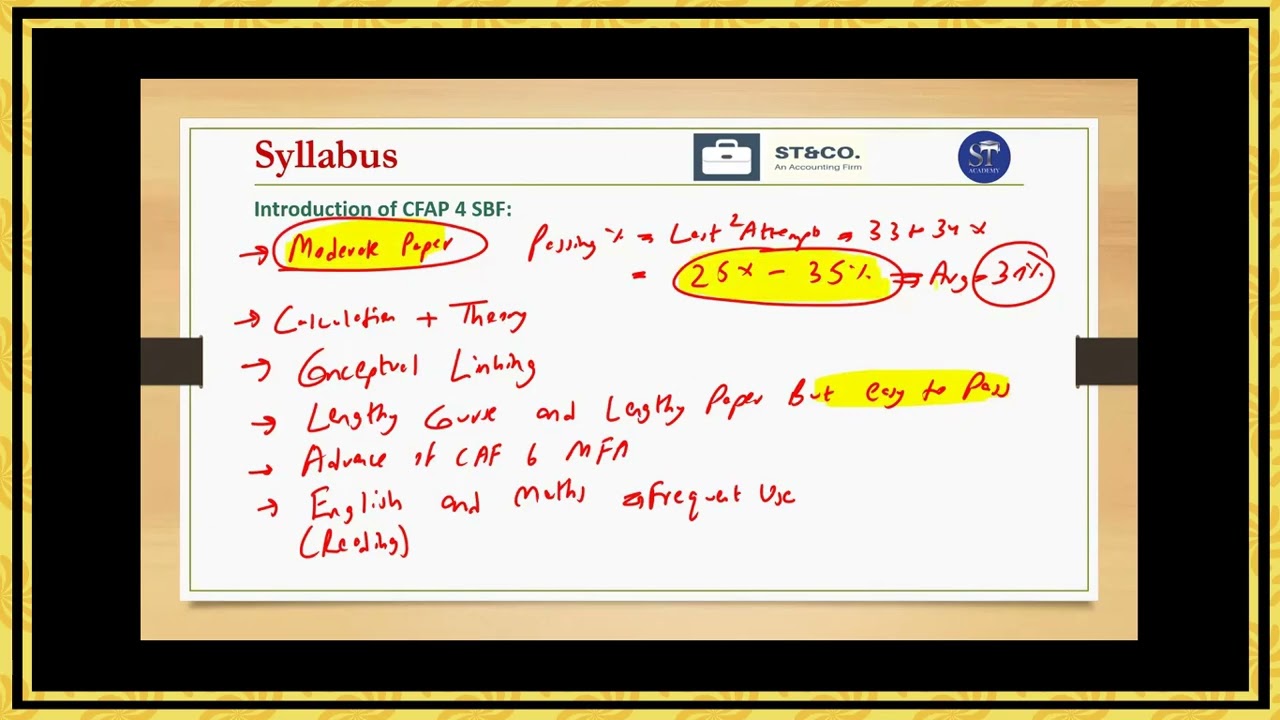 Syllabus
ST&CO.
An Accounting Firm
ST
ACADEMY
Introduction of CFAP 4 SBF:
→ Moderate Paper Passing % = Last 2 Attempt = 33 + 34 %
= 26% - 35% ⇒ Avg = 31%
→ Calculation + Theory
→ Conceptual Linking
→ Lengthy Course and Lengthy Paper But easy to Pass
→ Advance of CAF 6 MFA
→ English and Maths ⇒ Frequent Use
(Reading)